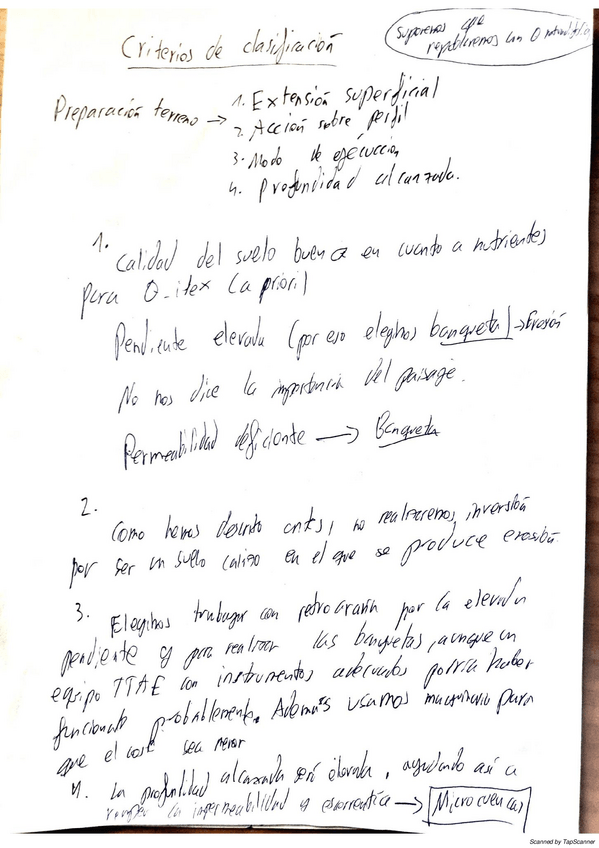 Criterios de clasificación
Suponemos que
repoblaremos con Q
Preparación terreno → 1. Extensión superficial
2. Acción sobre perfil
3. Modo de ejecución
4. Profundidad alcanzada.
1.
Calidad del suelo buena en cuanto a nutrientes
para Q_ilex (a priori)
Pendiente elevada (por eso elegimos banqueta) → Erosión
No nos dice la importancia del paisage.
Permeabilidad deficiente → Banqueta
2.
Como hemos descrito antes, no realizaremos inversión
por ser un suelo calizo en el que se produce erosión
3. Elegimos trabajar con retroaraña por la elevada
pendiente y para realizar las banquetas, aunque un
equipo TTAE con instrumentos adecuados podría haber
funcionado probablemente. Además usamos maquinaria para
que el coste sea menor
4. La profundidad alcanzada será elevada, ayudando así a
romper la impermeabilidad y escorrentía → Microcuencas
Scanned by TapScanner